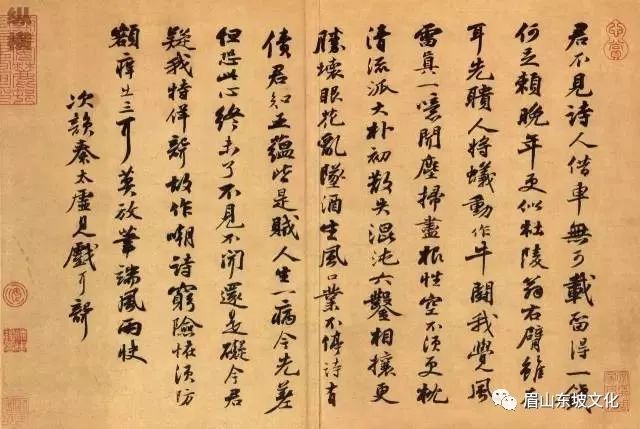 君不見詩人借車無可載留得一錢
何足賴晚年更似杜陵翁右臂雖存
耳先聵人將蟻動作牛鬭我覺風
雷真一噫聞塵掃盡根性空不須更枕
清流派大朴初散失混沌六鑿相攘更
勝壞眼花亂墜酒生風口業不停詩有
債君知五蘊皆是賊人生一病今先差
但恐此心終未了不見不聞還是礙今君
疑我特佯聾故作嘲詩窮險怪須防
額痒出三耳莫放筆端風雨快
次韻秦太虛見戲耳聾
眉山东坡文化